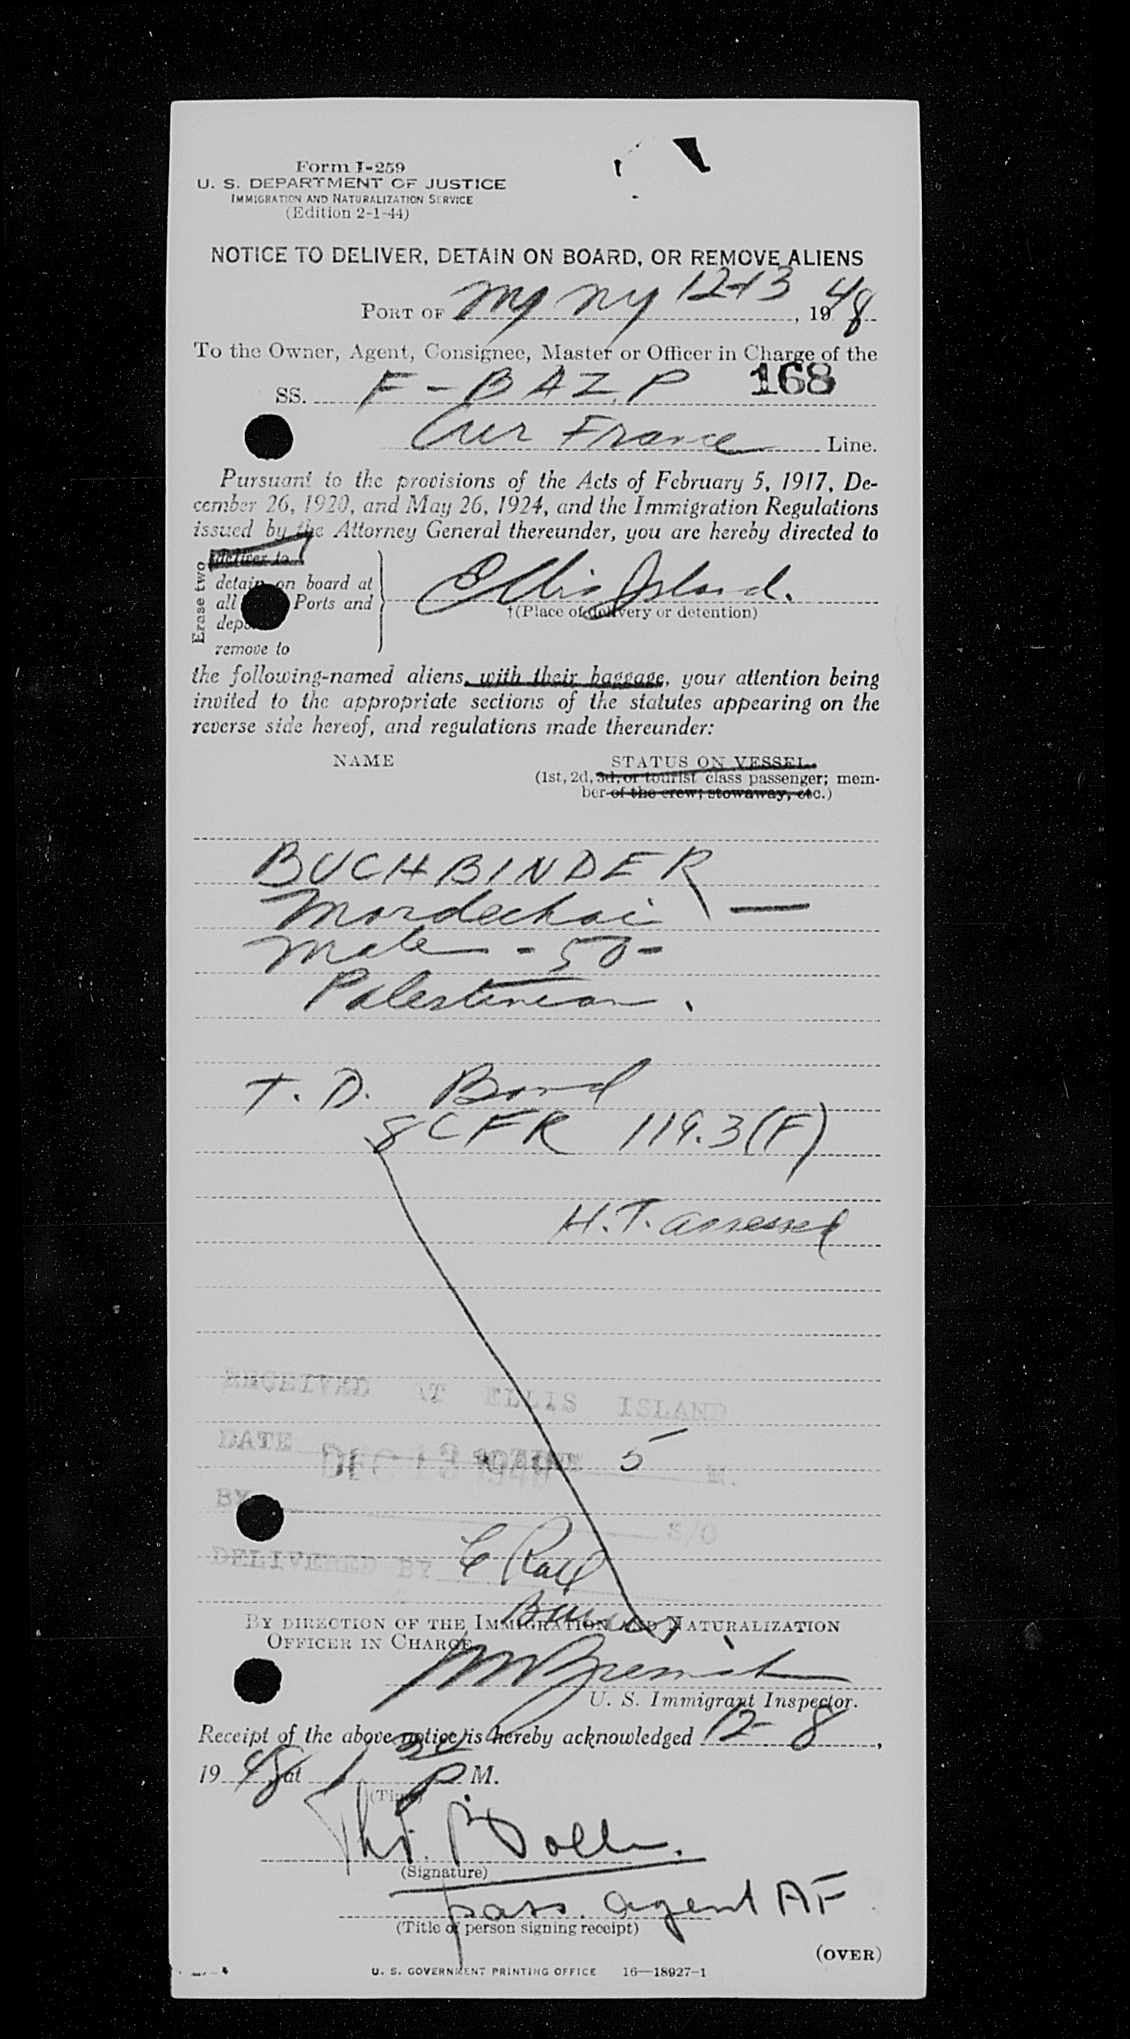 Form I-259
U. S. DEPARTMENT OF JUSTICE
IMMIGRATION AND NATURALIZATION SERVICE
(Edition 2-1-44)
NOTICE TO DELIVER, DETAIN ON BOARD, OR REMOVE ALIENS
PORT OF ny ny 12-13, 1948
To the Owner, Agent, Consignee, Master or Officer in Charge of the
SS. F-BAZP 168
Air France Line.
Pursuant to the provisions of the Acts of February 5, 1917, De-
cember 26, 1920, and May 26, 1924, and the Immigration Regulations
issued by the Attorney General thereunder, you are hereby directed to
Erase two
deliver to
detain on board at
all Ports and
remove to
Ellis Island.
†(Place of delivery or detention)
the following-named aliens, with their baggage, your attention being
invited to the appropriate sections of the statutes appearing on the
reverse side hereof, and regulations made thereunder:
NAME STATUS ON VESSEL
(1st, 2d, 3d, or tourist class passenger; mem-
ber of the crew; stowaway, etc.)
BUCHBINDER
Mordechai —
Male - 50 -
Palestinian.
T. D. Bond
8 CFR 119.3(F)
H.T. assessed
RECEIVED AT ELLIS ISLAND
DATE DEC 13 5 M.
BY
S/O
DELIVERED BY
BY DIRECTION OF THE IMMIGRATION AND NATURALIZATION
OFFICER IN CHARGE
U. S. Immigrant Inspector.
Receipt of the above notice is hereby acknowledged 12-8,
1948 at 1 30 P M.
(Time)
(Signature)
pass. agent AF
(Title of person signing receipt)
(OVER)
U. S. GOVERNMENT PRINTING OFFICE 16—18927-1